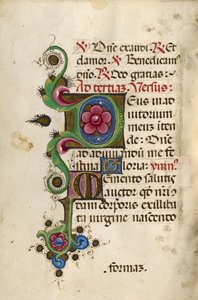 ℟ Dñe exaudi. ℟ Et
clamor. ℣ Benedicam'
dño. ℟ Deo gratias:
Ad tertiaz. Versus:
Deus in ad
iutorium
meus inten
de: Dñe
ad adiuuandũ me fe
stina Gloria: ymn9.
Memento salutis
auctor qd nr̃i
dam corporis ex illiba
ta uirgine nascendo
formaz.